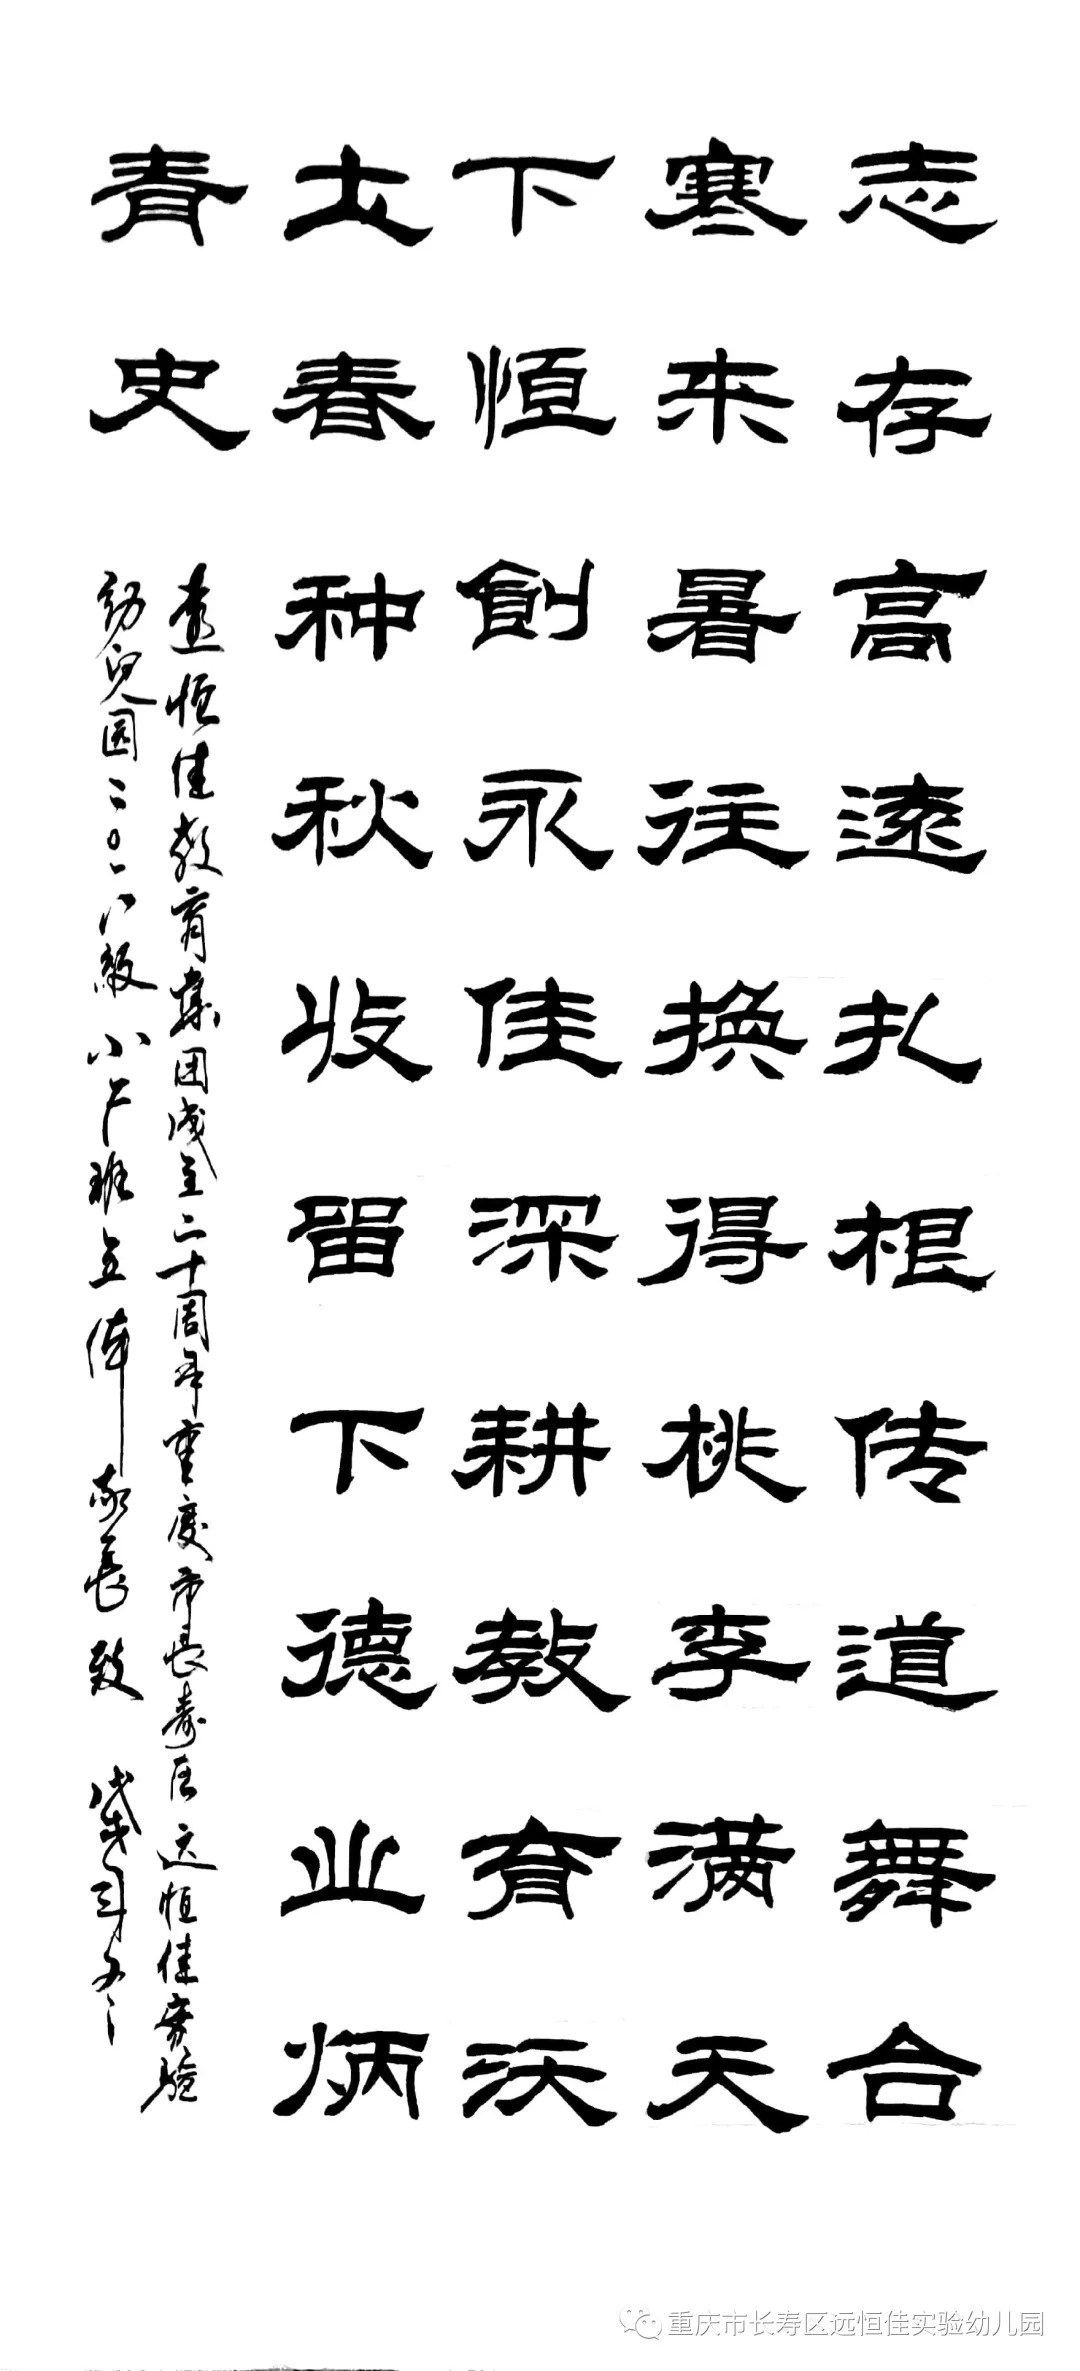 志存高遠扎根传道舞合
寒来暑往换得桃李满天
下恒創永佳深耕教育沃
土春种秋收留下德业炳
青史
遠恒佳教育集团成立二十周年重庆市长寿区远恒佳实验
幼兒园二〇一八級小 班全体家長致
重庆市长寿区远恒佳实验幼儿园